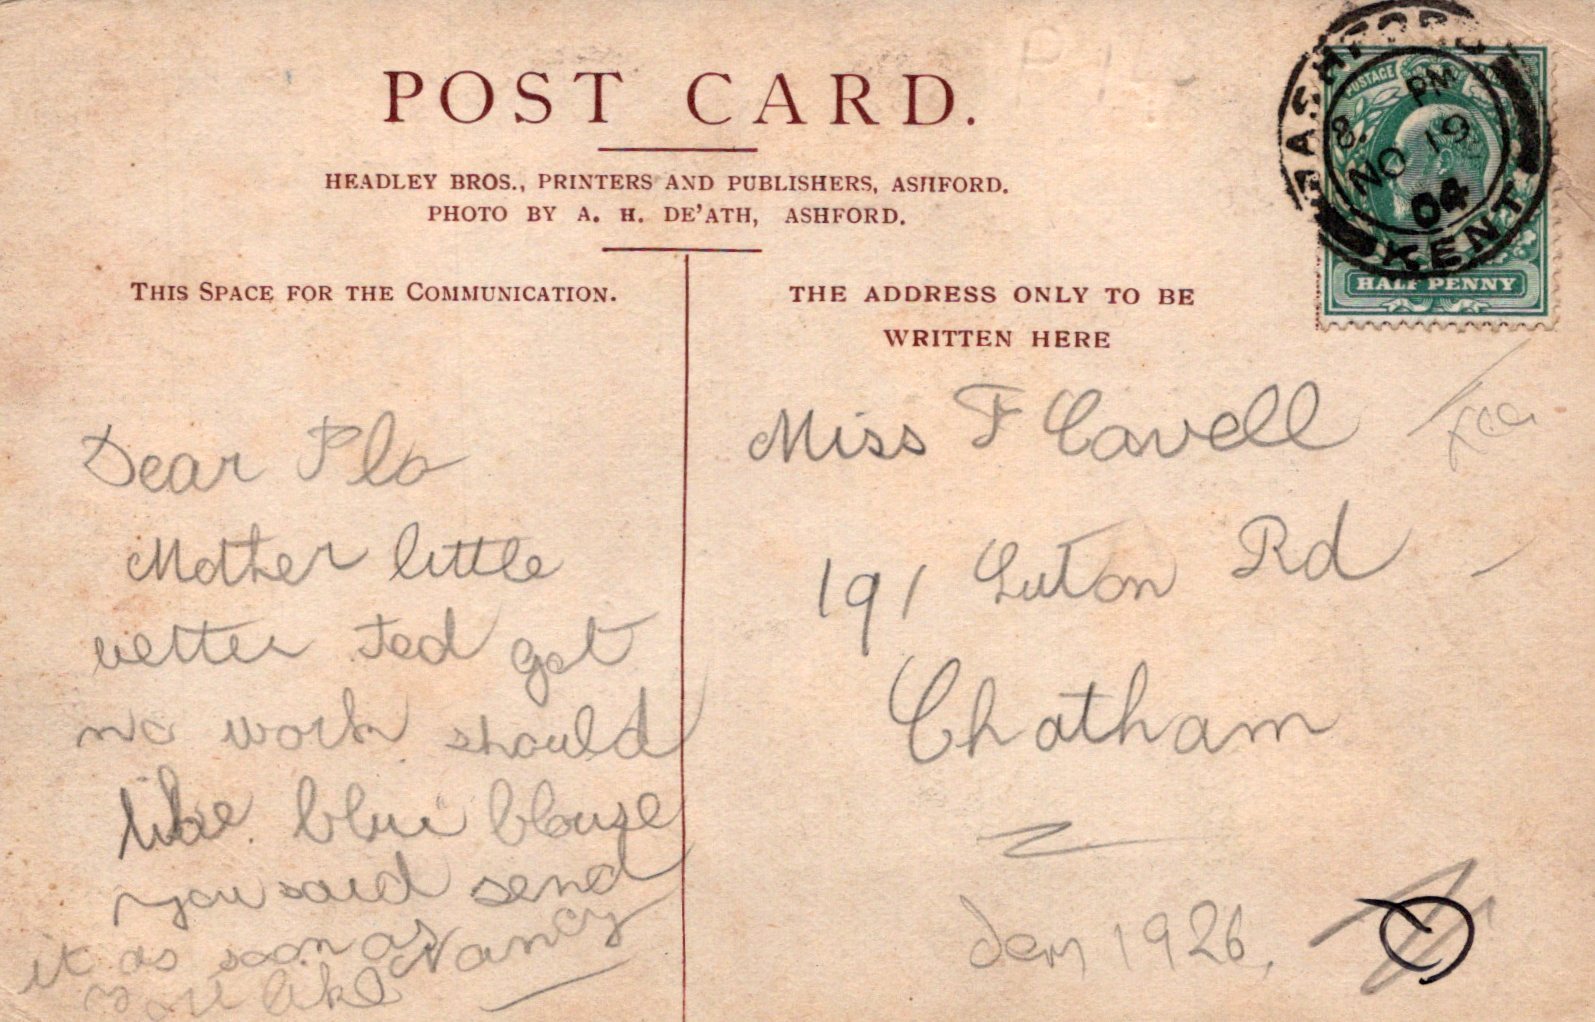 POST CARD.
HEADLEY BROS., PRINTERS AND PUBLISHERS, ASHFORD.
PHOTO BY A. H. DE'ATH, ASHFORD.
THIS SPACE FOR THE COMMUNICATION.
THE ADDRESS ONLY TO BE
WRITTEN HERE
ASHFORD
8. PM
NO 19
04
KENT
POSTAGE
HALF PENNY
Dear Flo
Mother little
better Ted got
no work should
like blue blouse
you said send
it as soon as
you like Nancy
Miss F Cavell
191 Luton Rd
Chatham
Dem 1926